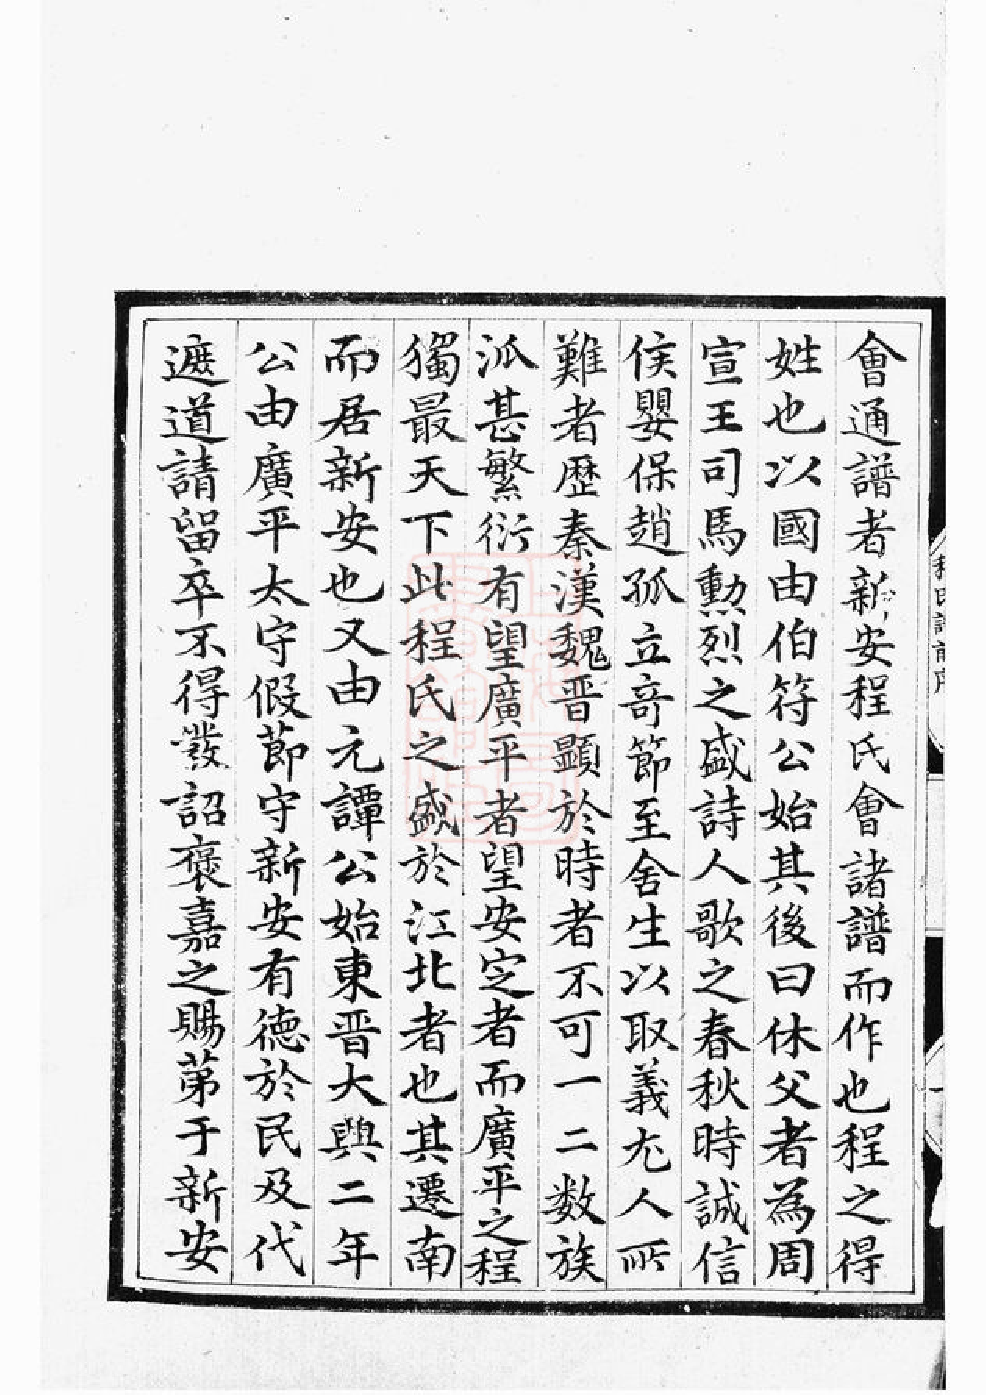 會通譜者新安程氏會諸譜而作也程之得
姓也以國由伯符公始其後曰休父者為周
宣王司馬勲烈之盛詩人歌之春秋時誠信
侯嬰保趙孤立奇節至舍生以取義尤人所
難者歷秦漢魏晋顯於時者不可一二数族
派甚繁衍有望廣平者望安定者而廣平之程
獨最天下此程氏之盛於江北者也其遷南
而居新安也又由元譚公始東晋大興二年
公由廣平太守假節守新安有德於民及代
遮道請留卒不得發詔褒嘉之賜苐于新安